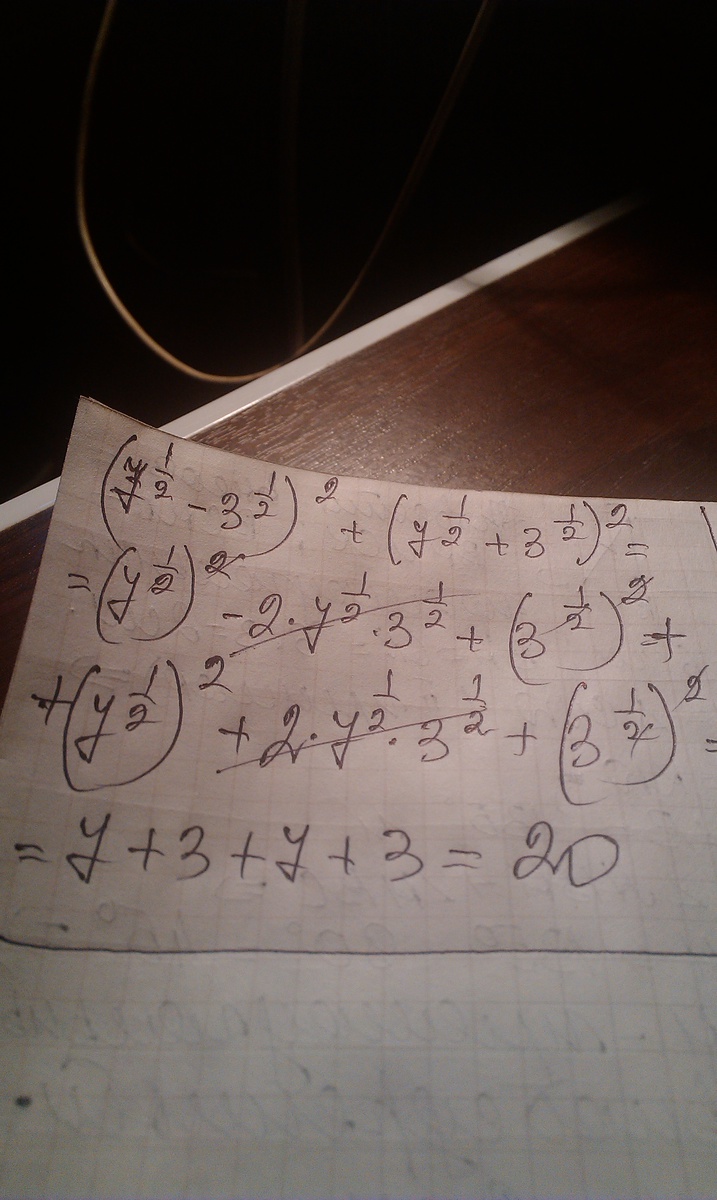 (7^{1/2} - 3^{1/2})^2 + (7^{1/2} + 3^{1/2})^2 =
= (7^{1/2})^2 - 2·7^{1/2}·3^{1/2} + (3^{1/2})^2 +
+ (7^{1/2})^2 + 2·7^{1/2}·3^{1/2} + (3^{1/2})^2 =
= 7 + 3 + 7 + 3 = 20